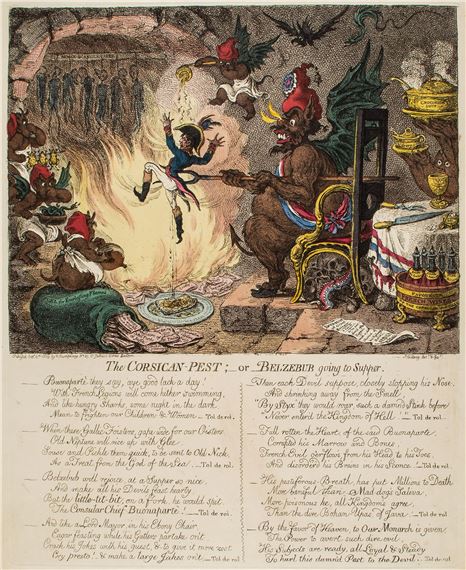 The CORSICAN-PEST; — or BELZEBUB going to Supper.
Buonaparte they say, aye good lack a day!
With French Legions will come hither swimming,
And like hungry Sharks, some night in the dark
Mean to frighten our Children & Women — Tol de rol.
When these Gallic Foisters, gape wide for our Oysters
Old Neptune will rise up with Glee
Souse and Pickle them quick, to be sent to Old Nick
As a Treat from the God of the Sea — Tol de rol.
Belzebub will rejoice at a Supper so nice
And make all his Devils feast hearty
But the little-tit-bit, on a fork, he would spit
The Consular Chief Buonaparte! — Tol de rol
And like a Lord Mayor in his Ebony Chair
Eager feasting while his Gutlers partake on't
Crack his Jokes with his guest, & to give it more zest
Cry presto! & make a large Jakes on't — Tol de rol
Then each Devil suppose, closely stopping his Nose
And shrinking away from the Smell
By Styx they would roar, such a damn'd Stink before
Never enter'd the Kingdom of Hell — Tol de rol
Full rotten the Heart of the said Buonaparte
Corrupted his Marrow and Bones
French Evil o'erflows from his Head to his Toes
And disorder'd his Brains in his Sconce — Tol de rol
His pestiferous Breath, has put Millions to Death
More baneful than a Mad-dogs Saliva,
More poisonous he, all Kingdoms agree
Than the dire Bohan-Upas of Java — Tol de rol
By the favor of Heaven, to Our Monarch is given
The Power to avert such dire evil,
His Subjects are ready, all Loyal & Steady
To hurl this damn'd Pest to the Devil — Tol de rol